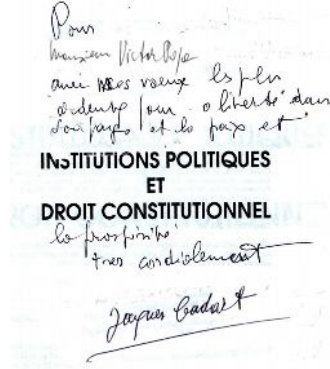 Pour
Monsieur Victor Pope
avec mes voeux les plus
ardents pour la liberté dans
son pays et la paix et
INSTITUTIONS POLITIQUES
ET
DROIT CONSTITUTIONNEL
la prospérité
très cordialement
Jacques Cadart